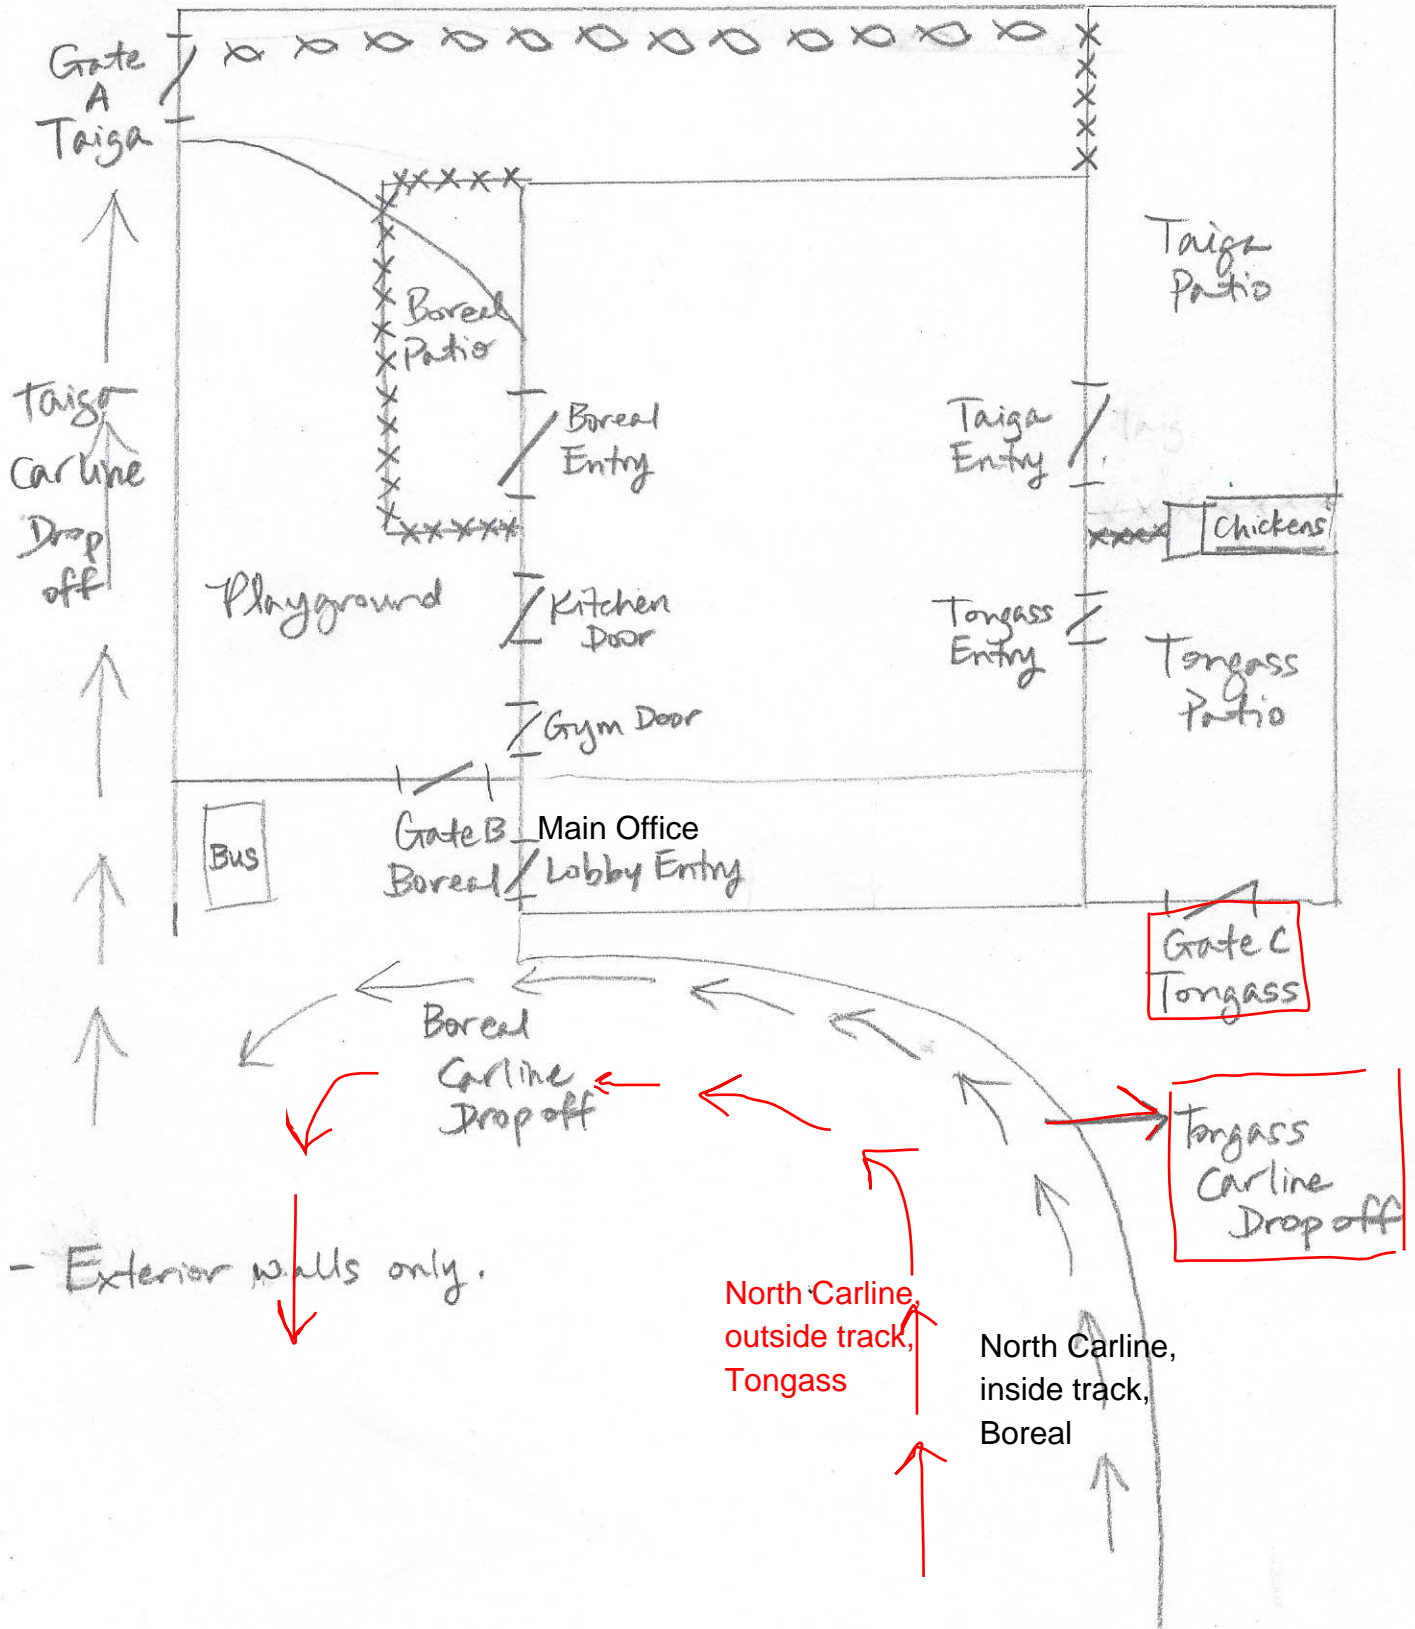 Gate
A
Taiga
Taiga
Patio
Boreal
Patio
Taiga
Carline
Drop
off
Boreal
Entry
Taiga
Entry
Chickens
Playground
Kitchen
Door
Tongass
Entry
Tongass
Patio
Gym Door
Bus
Gate B
Boreal
Main Office
Lobby Entry
Gate C
Tongass
Boreal
Carline
Drop off
Tongass
Carline
Drop off
- Exterior walls only.
North Carline,
outside track,
Tongass
North Carline,
inside track,
Boreal